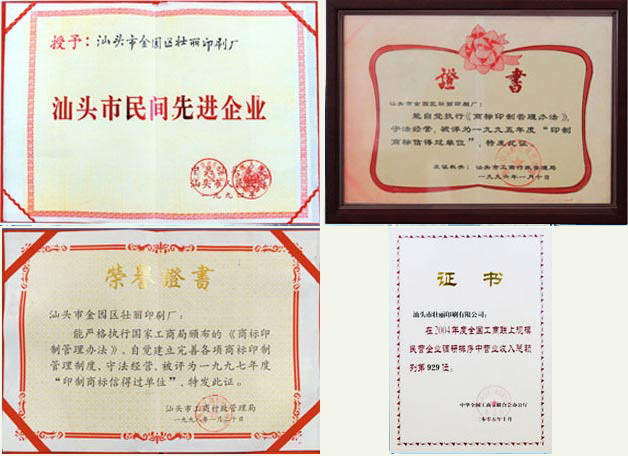 授予：汕头市金园区壮丽印刷厂
汕头市民间先进企业
汕头市人民政府
證書
汕头市金园区壮丽印刷厂：
能自觉执行《商标印制管理办法》，
守法经营，被评为一九九五年度“印制
商标信得过单位”，特发此证。
发证机关：汕头市工商行政管理局
一九九六年一月十日
荣誉證書
汕头市金园区壮丽印刷厂：
能严格执行国家工商局颁布的《商标印
制管理办法》，自觉建立完善各项商标印制
管理制度，守法经营，被评为一九九七年度
“印制商标信得过单位”，特发此证。
汕头市工商行政管理局
一九九八年一月二十日
证书
汕头市壮丽印刷有限公司：
在2004年度全国工商联上规模
民营企业调研排序中营业收入总额
列第929位。
中华全国工商业联合会办公厅
二〇〇五年十月